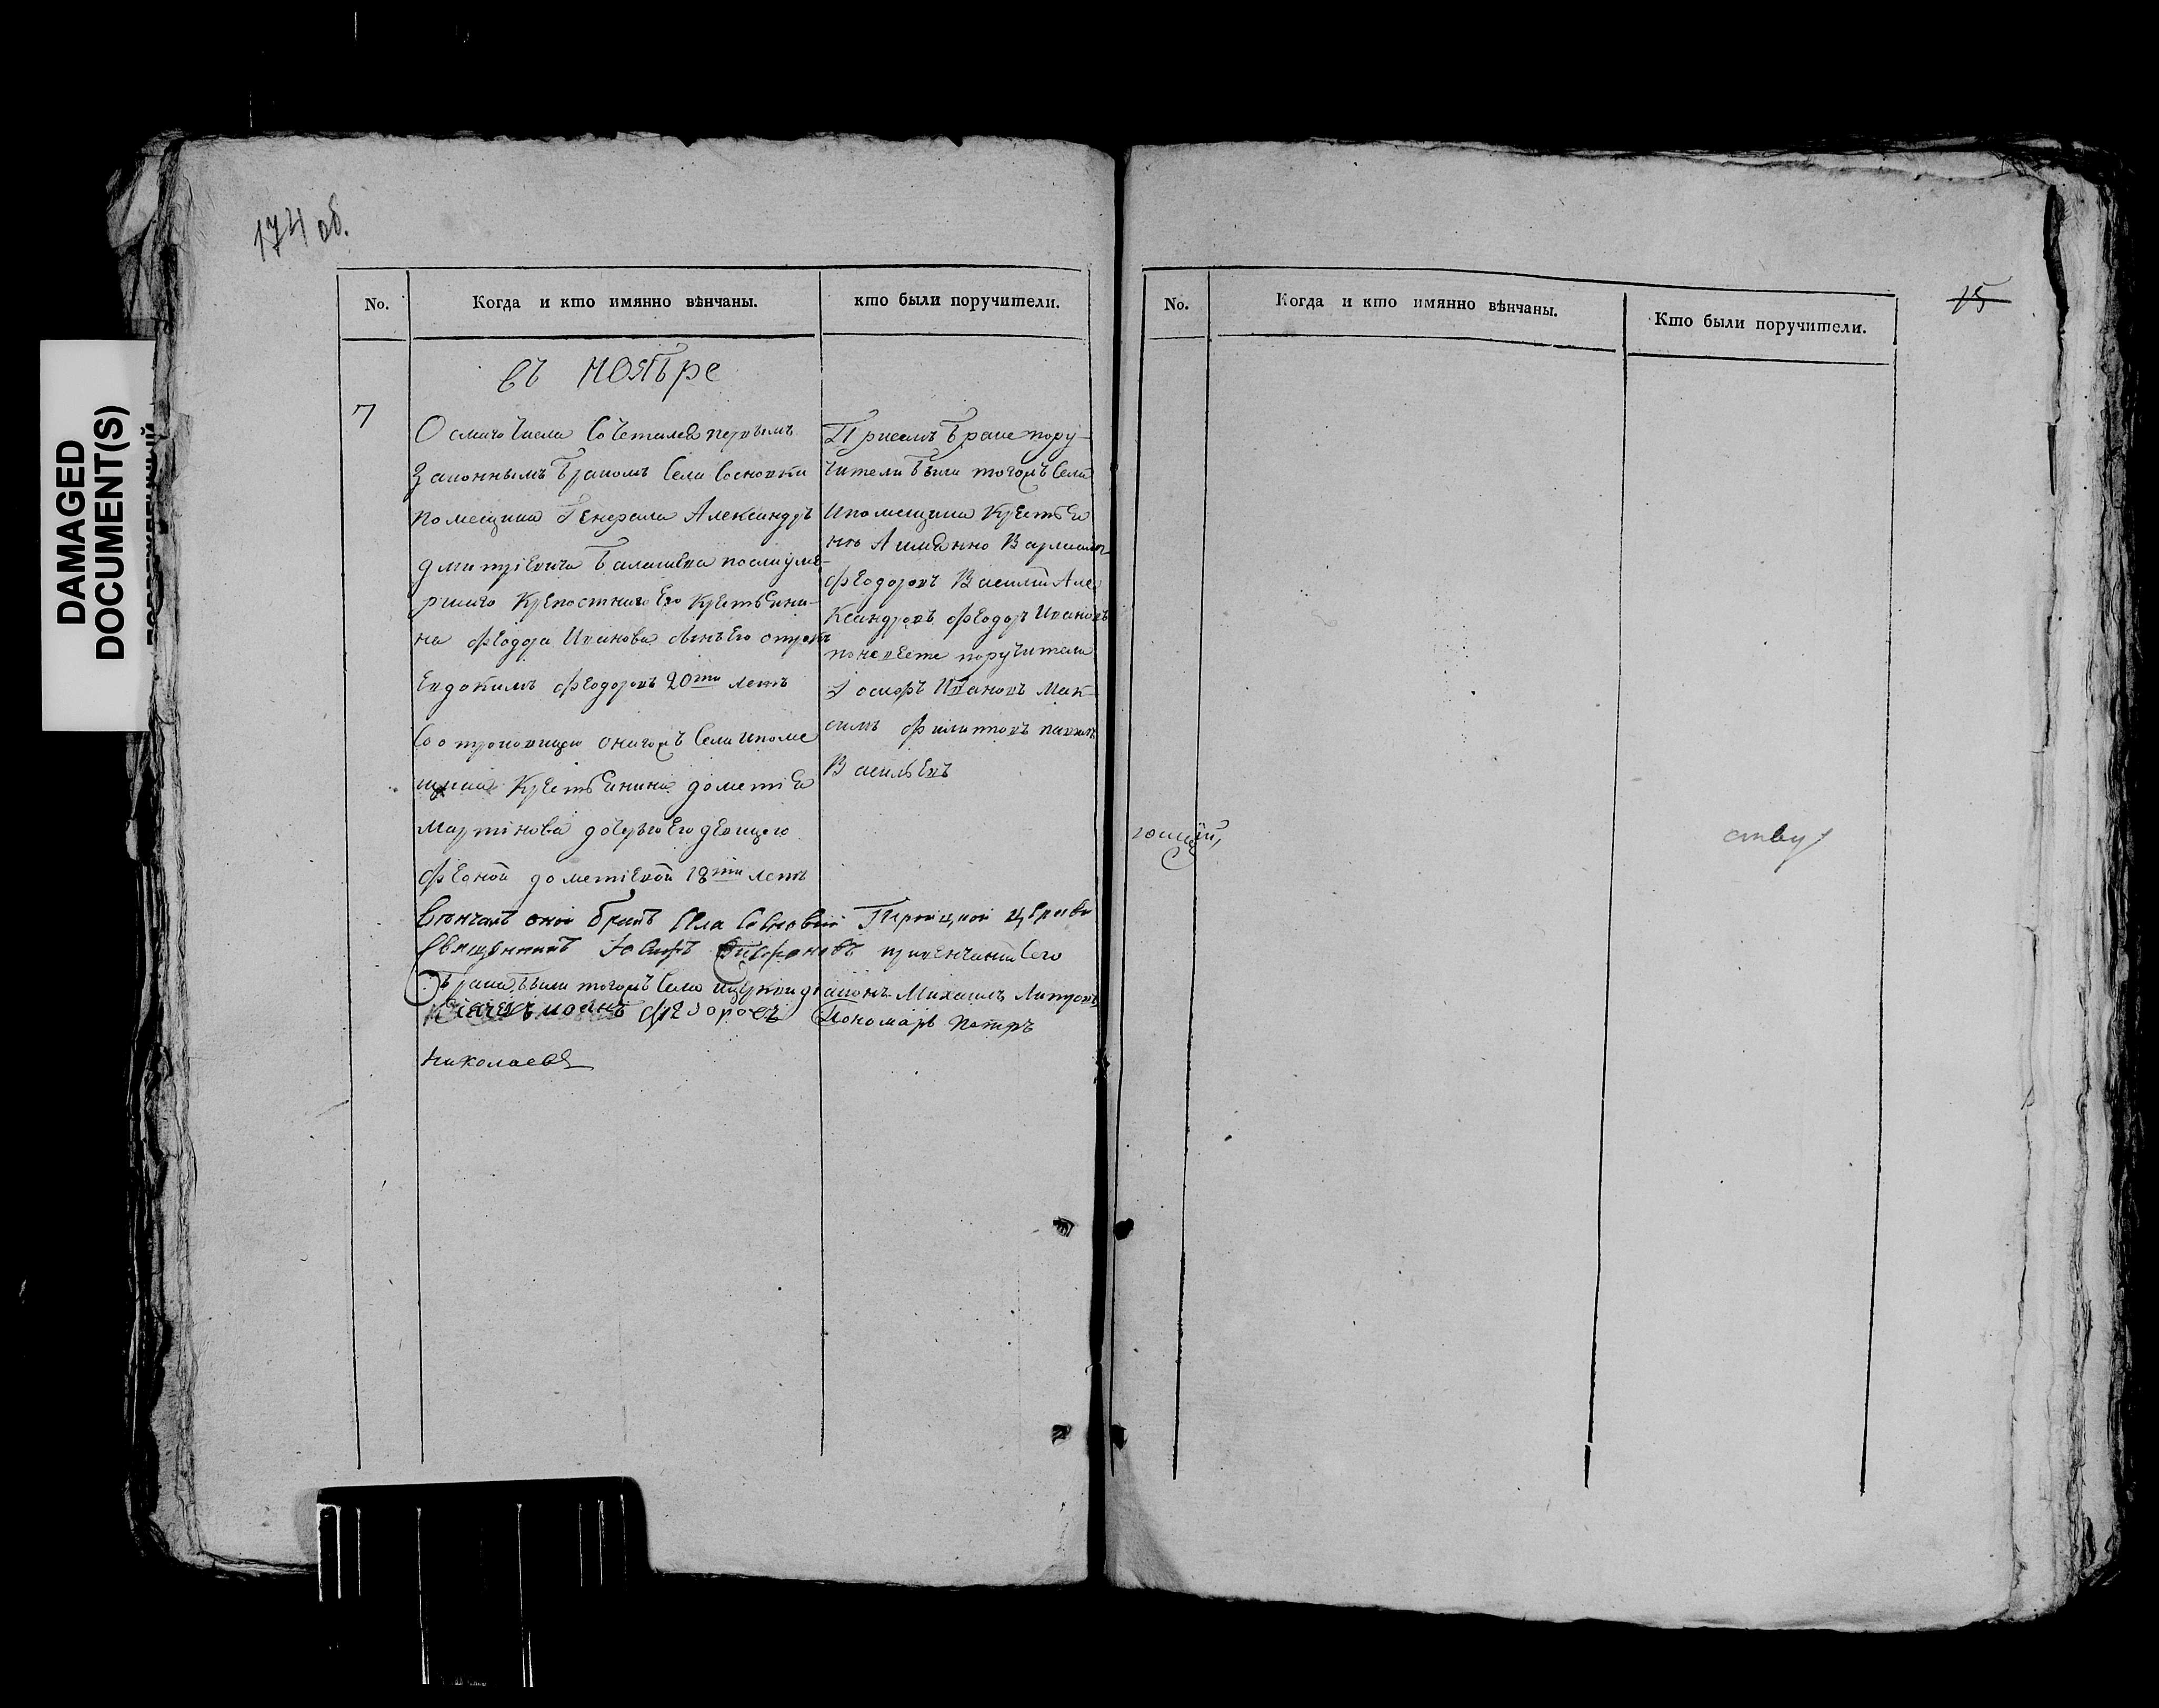 174 об.
DAMAGED
DOCUMENT(S)
No.
Когда и кто имянно вѣнчаны.
кто были поручители.
въ ноябре
7
Осмаго Числа Сочетался первымъ
Законнымъ бракомъ Села Сосновки
помещика Генерала Александръ
дмитріевича Балашева послиуме-
ршаго Крепостнаго Его Крестьяни-
на Феодора Иванова сынъ Его отрокъ
Евдокимъ Феодоровъ 20ти летъ
Соотроковицею онагожъ Села ипоме
щика Крестьянина дометіея
Мартінова дочерью Его девицею
Феоной дометіевой 18ти летъ
Присемъ браке пору-
чители были тогожъ Села
Ипомещика Крестьея
не Аимянно Варламъ
Феодоровъ Василій Але
Ксандровъ Феодоръ Ивановъ
поневесте поручители
Іосифъ Ивановъ Мак-
симъ Филиповъ
Васильевъ
Венчалъ оной бракъ Села Сосновки Троицкой церкви
Священникъ Іосифъ привенчании Сего
брака были тогожъ Села ицеркви діаконъ Михаилъ
Феодоровъ Пономарь Петръ
Николаевъ
No.
Когда и кто имянно вѣнчаны.
Кто были поручители.
15
ющій,
ству